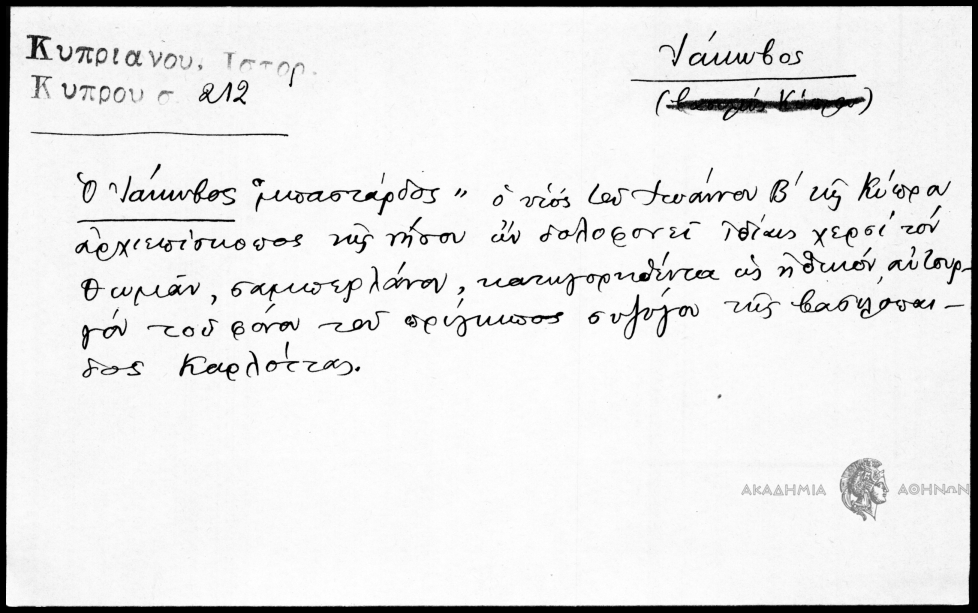 Κυπριανου, Ιστορ.
Κυπρου σ. 212
Ἰάκωβος
Ὁ Ἰάκωβος "μπαστάρδος" ὁ υἱός τοῦ Ἰωάννου Β' τῆς Κύπρου
ἀρχιεπίσκοπος τῆς νήσου ὢν δολοφονεῖ ἰδίαις χερσί τόν
Θωμᾶν, σαμπερλάνον, κατηγορηθέντα ὡς ἠθικόν αὐτουρ-
γόν τοῦ φόνου τοῦ πρίγκιπος συζύγου τῆς βασιλόπαι-
δος Καρλόττας.
ΑΚΑΔΗΜΙΑ ΑΘΗΝΩΝ